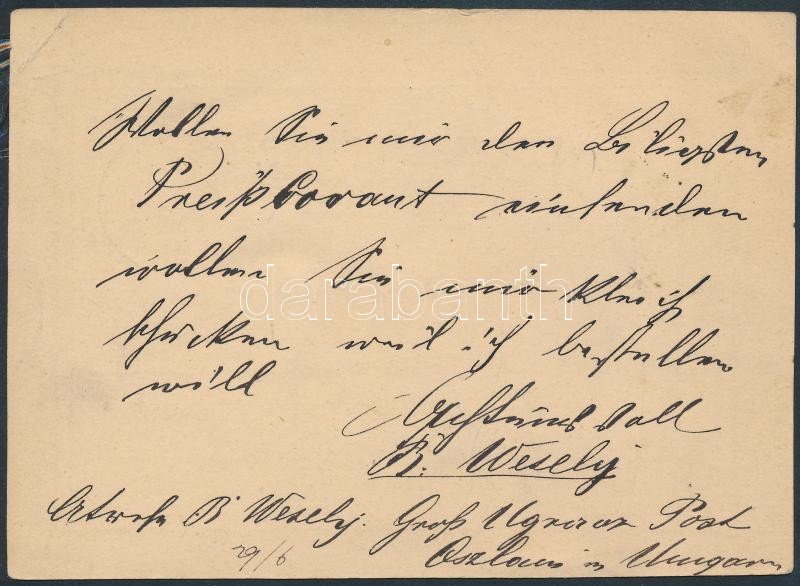 Wollen Sie mir den Biligsten
Preißcorant einsenden
wollen Sie mir kleich
schicken weil ich bestellen
will
Achtungsvoll
B. Wesely
Atrese B. Wesely. Groß Ugrocz Post
Oszlani in Ungarn
29/6
darabanth